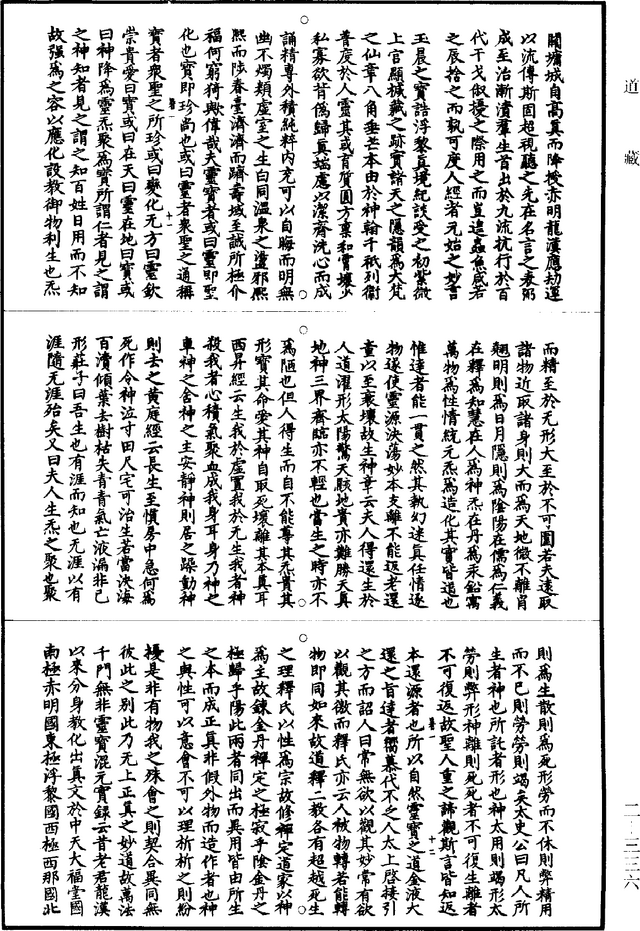 道藏
二-三三六
開墉城自高真而降授亦明龍漢應劫運
以流傳斯固超視聽之先在名言之表弼
成至治漸漬羣生首出於九流抗行於百
代干戈俶擾之際用之而豈追蟲魚咸若
之辰捨之而孰可度人經者元始之妙言
玉晨之寶誥浮黎真境紀談受之初紫微
上官顯檢藏之跡實諸天之隱韻為大梵
之仙章八角垂芒本由於神翰千秖列衞
普度於人靈其或育質圓方稟和霄壤少
私寡欲皆偽歸真端慮以潔齋洗心而成
誦精專外積純粹內充可以自晦而明無
幽不燭類虛室之生白同溫泉之盪邪熙
熙而陟春臺濟濟而躋壽域至誠所極介
福何窮猗歟偉哉夫靈寶者或曰靈即聖
化也寶即珍尚也或曰靈者衆聖之道稱
十一
寶者衆聖之所珍或曰變化无方曰靈欽
崇貴愛曰寶或曰在天曰靈在地曰寶或
曰神降為靈炁聚為寶所謂仁者見之謂
之神知者見之謂之知百姓日用而不知
故强為之容以應化設教御物利生也炁
而精至於无形大至於不可圍若夫遠取
諸物近取諸身則大而為天地微不離肖
翹明則為日月隱則為陰陽在儒為仁義
在釋為知慧在人為神炁在丹為汞鉛寓
萬物為性情統元炁為造化其實皆道也
惟達者能一貫之然其執幻迷真任情逐
物遂使靈源決蕩妙本支離不能返老還
童以至衰壞故生神章云夫人得還生於
人道濯形太陽驚天駭地貴亦難勝天真
地神三界齊臨亦不輕也當生之時亦不
為陋也但人得生而自不能尊其炁貴其
形寶其命愛其神自取死壞離其本真耳
西昇經云生我於虛置我於无生我者神
殺我者心積氣聚血成我身耳身乃神之
車神之舍神之主安靜神則居之躁動神
則去之黄庭經云長生至慎房中急何為
死作令神泣寸田尺宅可治生若當決海
百瀆傾葉去樹枯失青青氣亡液漏非己
形莊子曰吾生也有涯而知也无涯以有
涯隨无涯殆矣又曰夫人生炁之聚也聚
則為生散則為死形勞而不休則弊精用
而不已則勞勞則竭矣太史公曰凡人所
生者神也所託者形也神太用則竭形太
勞則弊形神離則死死者不可復生離者
不可復返故聖人重之諦觀斯言皆知返
十二
本還源者也所以自然靈寶之道金液大
還之旨達者嚮慕代不乏人太上啓接引
之方而詔人曰常無欲以觀其妙常有欲
以觀其徼而釋氏亦云人被物轉若能轉
物即同如來故道釋二教各有超越死生
之理釋氏以性為宗故修禪定道家以神
為主故鍊金丹禪定之極寂乎陰金丹之
極歸乎陽此兩者同出而異用皆由所生
之本而成正真非假外物而造作者也神
之與性可以意會不可以理析析之則紛
擾是非有物我之殊會之則契合異同無
彼此之别此乃无上正真之妙道故萬法
千門無非靈寶混元實録云昔老君龍漢
以來分身教化出真文於中天大福堂國
南極赤明國東極浮黎國西極西那國北